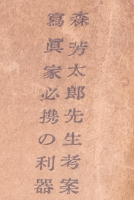 森芳太郎先生考案
寫眞家必携の利器